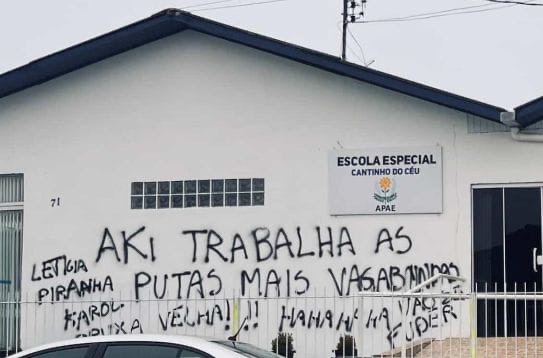 ESCOLA ESPECIAL
CANTINHO DO CÉU
APAE
71
AKI TRABALHA AS
PUTAS MAIS VAGABUNDAS
LETIGIA
PIRANHA
KAROL
BRUXA VELHA!!!
HAHAHAHA VÃO SE
FUDER